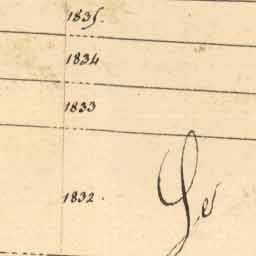 1835.
1834
1833
1832. Le